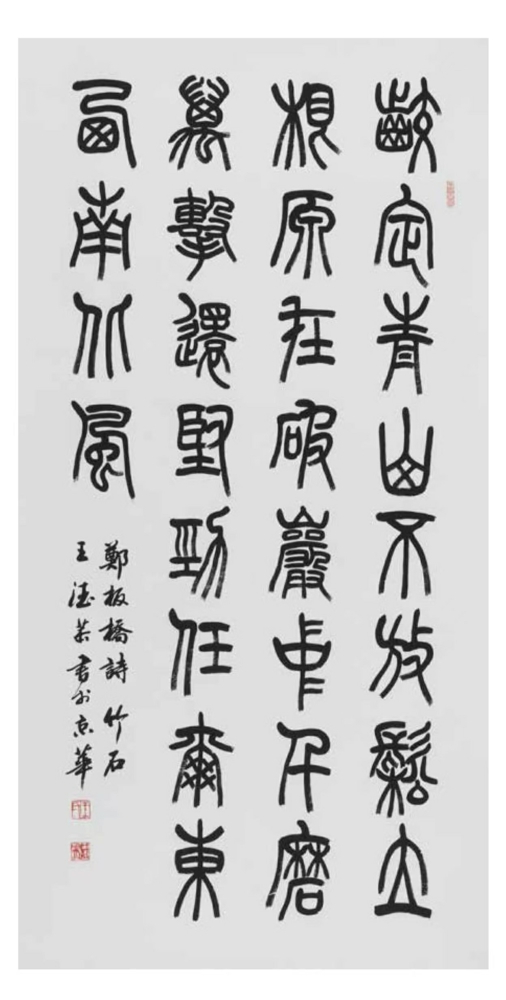 齩定青山不放鬆立
根原在破巖中千磨
萬擊還堅勁任爾東
西南北風
鄭板橋詩 竹石
王德書於京華